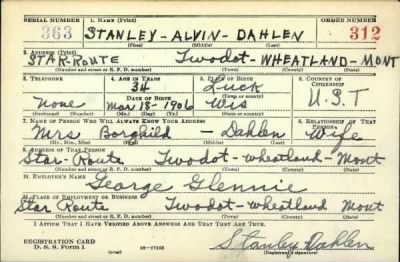 SERIAL NUMBER 1. NAME (Print) ORDER NUMBER
363 STANLEY - ALVIN - DAHLEN 312
(First) (Middle) (Last)
2. ADDRESS (Print)
STAR-ROUTE Twodot - WHEATLAND - MONT
(Number and street or R. F. D. number) (Town) (County) (State)
3. TELEPHONE 4. AGE IN YEARS 5. PLACE OF BIRTH 6. COUNTRY OF CITIZENSHIP
34 Luck
DATE OF BIRTH (Town or county)
None Mar 18 - 1906 Wis U.S.
(Exchange) (Number) (Mo.) (Day) (Yr.) (State or country)
7. NAME OF PERSON WHO WILL ALWAYS KNOW YOUR ADDRESS 8. RELATIONSHIP OF THAT PERSON
Mrs Borghild - Dahlen Wife
(Mr., Mrs., Miss) (First) (Middle) (Last)
9. ADDRESS OF THAT PERSON
Star - Route Twodot - Wheatland - Mont
(Number and street or R. F. D. number) (Town) (County) (State)
10. EMPLOYER'S NAME
George Glennie
11. PLACE OF EMPLOYMENT OR BUSINESS
Star Route Twodot - Wheatland Mont
(Number and street or R. F. D. number) (Town) (County) (State)
I AFFIRM THAT I HAVE VERIFIED ABOVE ANSWERS AND THAT THEY ARE TRUE.
REGISTRATION CARD
D. S. S. Form 1
Stanley Dahlen
(Registrant's signature)